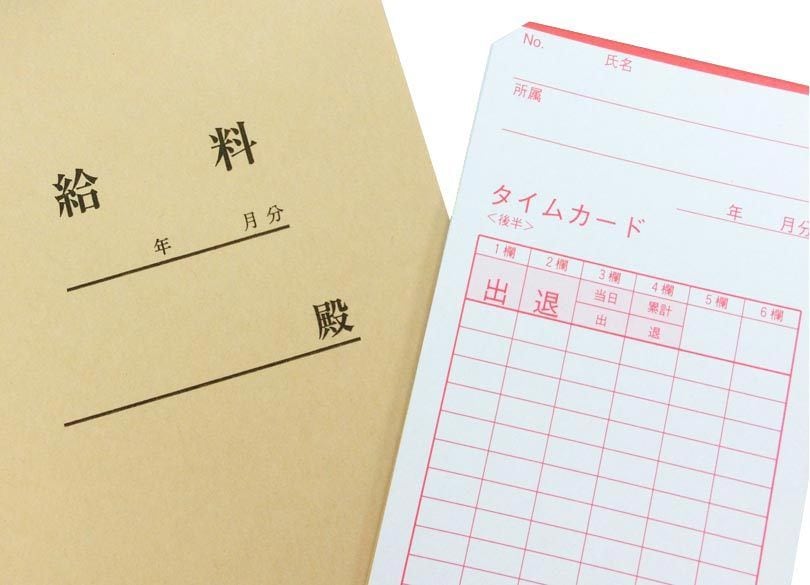 給 料
年 月分
殿
No.
氏名
所属
タイムカード
年 月分
<後半>
1欄 2欄 3欄 4欄 5欄 6欄
出 退 当日 累計
出 退